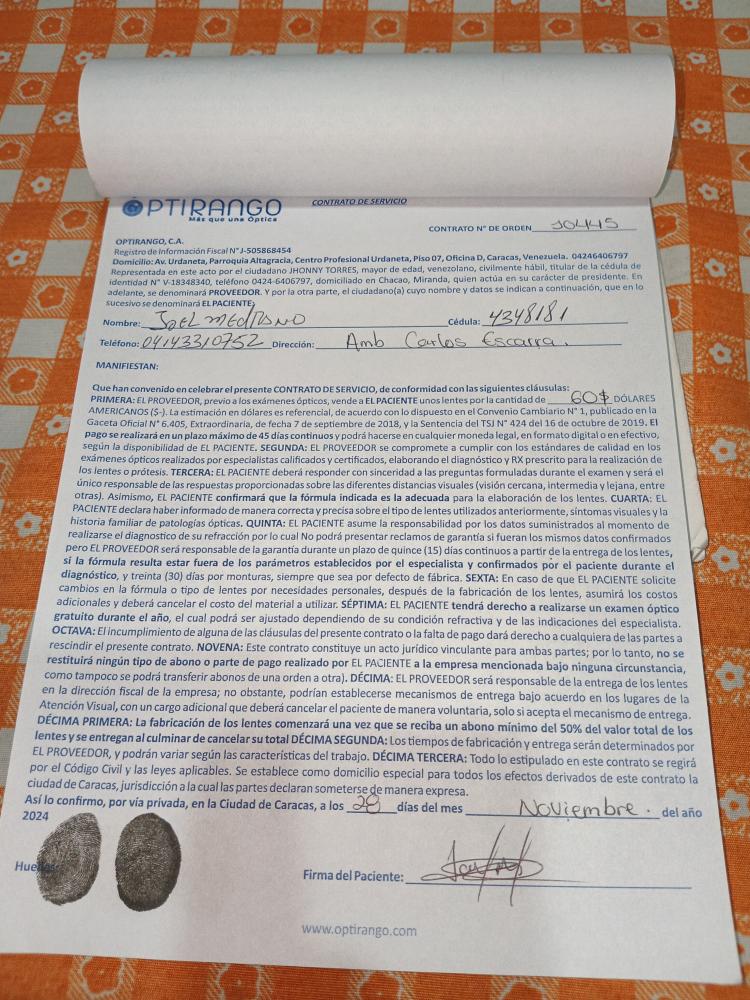 OPTIRANGO
Más que una Óptica
CONTRATO DE SERVICIO
CONTRATO N° DE ORDEN 10445
OPTIRANGO, C.A.
Registro de Información Fiscal N° J-505868454
Domicilio: Av. Urdaneta, Parroquia Altagracia, Centro Profesional Urdaneta, Piso 07, Oficina D, Caracas, Venezuela. 04246406797
Representada en este acto por el ciudadano JHONNY TORRES, mayor de edad, venezolano, civilmente hábil, titular de la cédula de
identidad N° V-18348340, teléfono 0424-6406797, domiciliado en Chacao, Miranda, quien actúa en su carácter de presidente. En
adelante, se denominará PROVEEDOR. Y por la otra parte, el ciudadano(a) cuyo nombre y datos se indican a continuación, que en lo
sucesivo se denominará EL PACIENTE;
Nombre: JOEL MEDRANO Cédula: 4348181
Teléfono: 04143310752 Dirección: Amb Carlos Escarra.
MANIFIESTAN:
Que han convenido en celebrar el presente CONTRATO DE SERVICIO, de conformidad con las siguientes cláusulas:
PRIMERA: EL PROVEEDOR, previo a los exámenes ópticos, vende a EL PACIENTE unos lentes por la cantidad de 60$ DÓLARES
AMERICANOS ($-). La estimación en dólares es referencial, de acuerdo con lo dispuesto en el Convenio Cambiario N° 1, publicado en la
Gaceta Oficial N° 6.405, Extraordinaria, de fecha 7 de septiembre de 2018, y la Sentencia del TSJ N° 424 del 16 de octubre de 2019. El
pago se realizará en un plazo máximo de 45 días continuos y podrá hacerse en cualquier moneda legal, en formato digital o en efectivo,
según la disponibilidad de EL PACIENTE. SEGUNDA: EL PROVEEDOR se compromete a cumplir con los estándares de calidad en los
exámenes ópticos realizados por especialistas calificados y certificados, elaborando el diagnóstico y RX prescrito para la realización de
los lentes o prótesis. TERCERA: EL PACIENTE deberá responder con sinceridad a las preguntas formuladas durante el examen y será el
único responsable de las respuestas proporcionadas sobre las diferentes distancias visuales (visión cercana, intermedia y lejana, entre
otras). Asimismo, EL PACIENTE confirmará que la fórmula indicada es la adecuada para la elaboración de los lentes. CUARTA: EL
PACIENTE declara haber informado de manera correcta y precisa sobre el tipo de lentes utilizados anteriormente, síntomas visuales y la
historia familiar de patologías ópticas. QUINTA: EL PACIENTE asume la responsabilidad por los datos suministrados al momento de
realizarse el diagnostico de su refracción por lo cual No podrá presentar reclamos de garantía si fueran los mismos datos confirmados
pero EL PROVEEDOR será responsable de la garantía durante un plazo de quince (15) días continuos a partir de la entrega de los lentes,
si la fórmula resulta estar fuera de los parámetros establecidos por el especialista y confirmados por el paciente durante el
diagnóstico, y treinta (30) días por monturas, siempre que sea por defecto de fábrica. SEXTA: En caso de que EL PACIENTE solicite
cambios en la fórmula o tipo de lentes por necesidades personales, después de la fabricación de los lentes, asumirá los costos
adicionales y deberá cancelar el costo del material a utilizar. SÉPTIMA: EL PACIENTE tendrá derecho a realizarse un examen óptico
gratuito durante el año, el cual podrá ser ajustado dependiendo de su condición refractiva y de las indicaciones del especialista.
OCTAVA: El incumplimiento de alguna de las cláusulas del presente contrato o la falta de pago dará derecho a cualquiera de las partes a
rescindir el presente contrato. NOVENA: Este contrato constituye un acto jurídico vinculante para ambas partes; por lo tanto, no se
restituirá ningún tipo de abono o parte de pago realizado por EL PACIENTE a la empresa mencionada bajo ninguna circunstancia,
como tampoco se podrá transferir abonos de una orden a otra). DÉCIMA: EL PROVEEDOR será responsable de la entrega de los lentes
en la dirección fiscal de la empresa; no obstante, podrían establecerse mecanismos de entrega bajo acuerdo en los lugares de la
Atención Visual, con un cargo adicional que deberá cancelar el paciente de manera voluntaria, solo si acepta el mecanismo de entrega.
DÉCIMA PRIMERA: La fabricación de los lentes comenzará una vez que se reciba un abono mínimo del 50% del valor total de los
lentes y se entregan al culminar de cancelar su total DÉCIMA SEGUNDA: Los tiempos de fabricación y entrega serán determinados por
EL PROVEEDOR, y podrán variar según las características del trabajo. DÉCIMA TERCERA: Todo lo estipulado en este contrato se regirá
por el Código Civil y las leyes aplicables. Se establece como domicilio especial para todos los efectos derivados de este contrato la
ciudad de Caracas, jurisdicción a la cual las partes declaran someterse de manera expresa.
Así lo confirmo, por vía privada, en la Ciudad de Caracas, a los 28 días del mes Noviembre. del año
2024
Huellas:
Firma del Paciente:
www.optirango.com